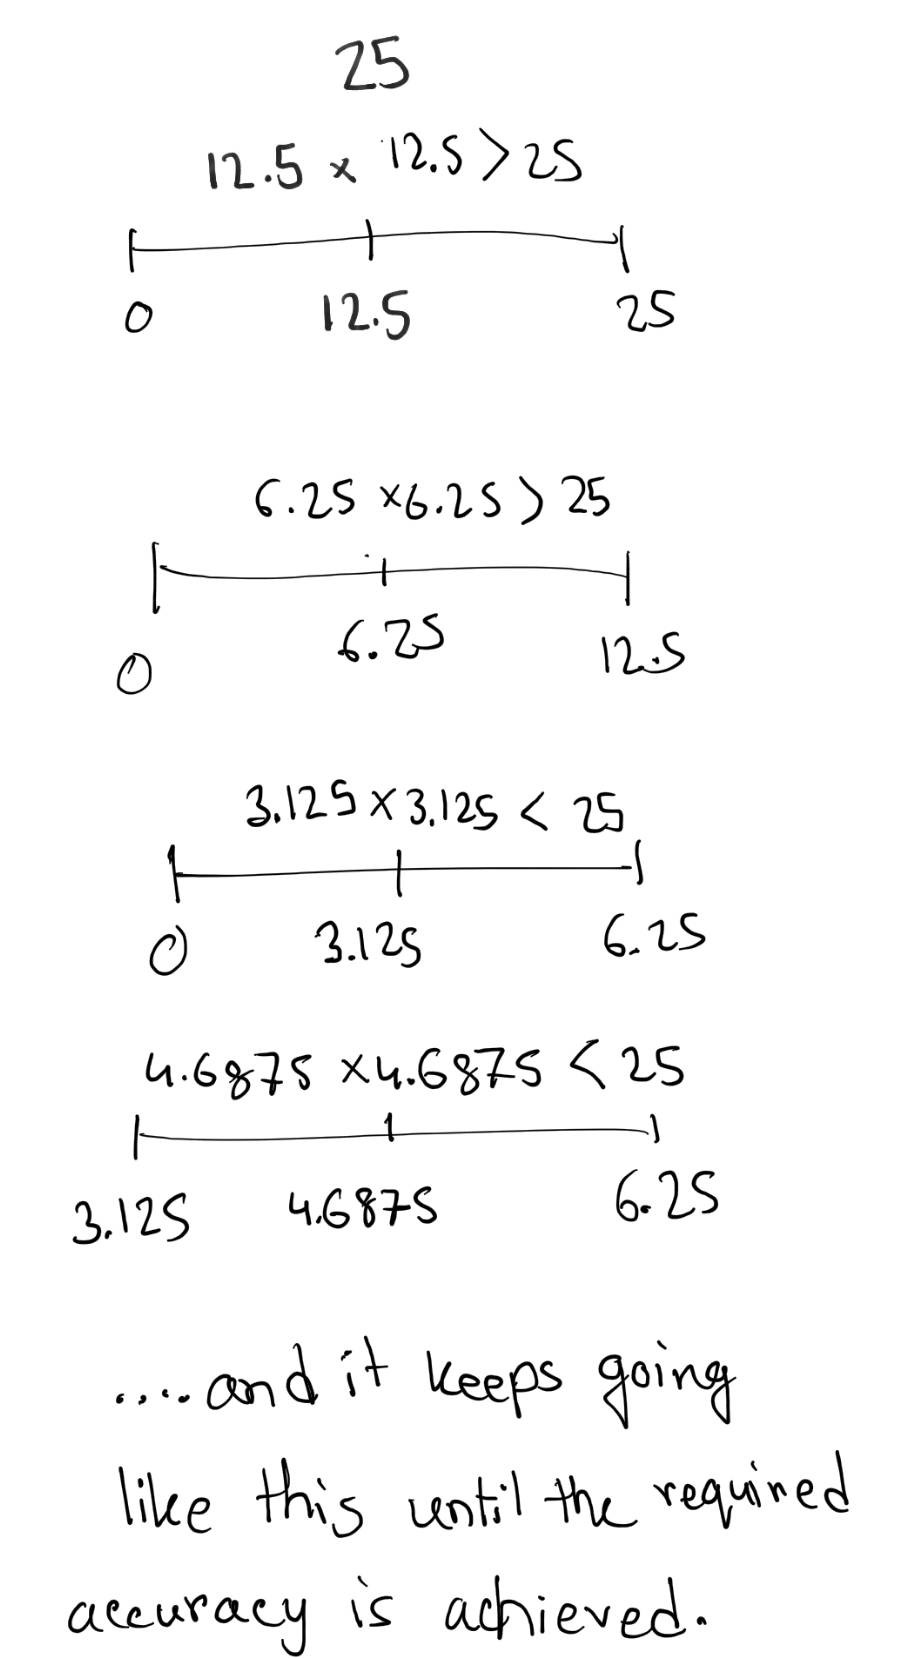 25
12.5 × 12.5 > 25
0 12.5 25
6.25 × 6.25 > 25
0 6.25 12.5
3.125 × 3.125 < 25
0 3.125 6.25
4.6875 × 4.6875 < 25
3.125 4.6875 6.25
.... and it keeps going
like this until the required
accuracy is achieved.